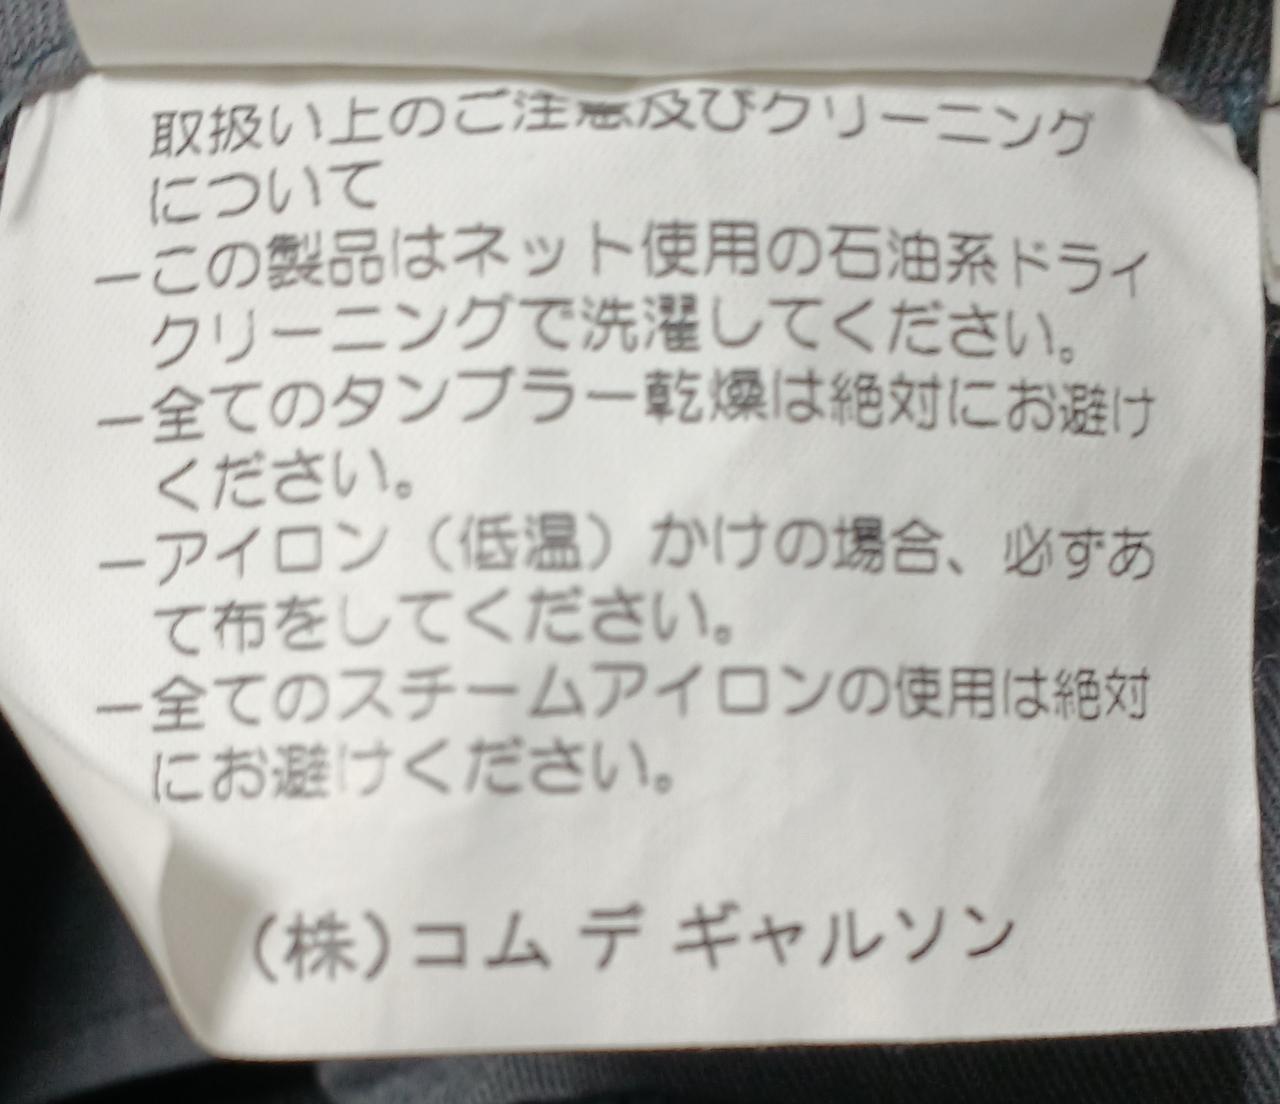 取扱い上のご注意及びクリーニング
について
ーこの製品はネット使用の石油系ドライ
クリーニングで洗濯してください。
ー全てのタンブラー乾燥は絶対にお避け
ください。
ーアイロン（低温）かけの場合、必ずあ
て布をしてください。
ー全てのスチームアイロンの使用は絶対
にお避けください。
(株)コム デ ギャルソン